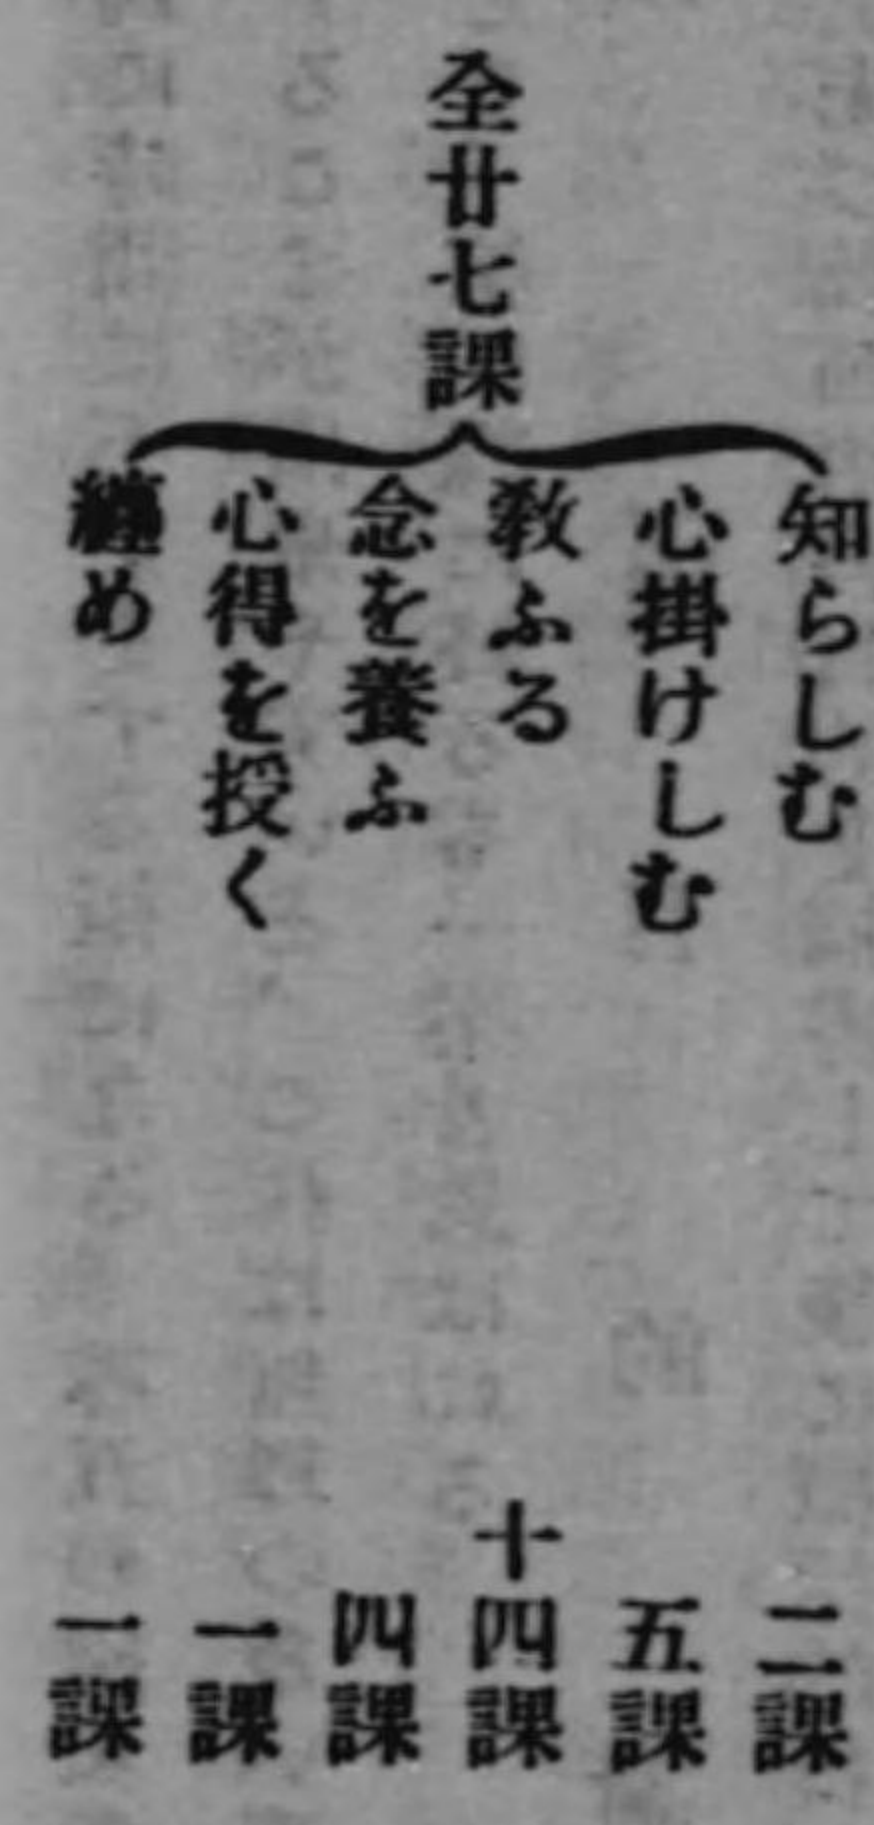 全廿七課
知らしむ 二課
心掛けしむ 五課
敎ふる 十四課
念を養ふ 四課
心得を授く 一課
纏め 一課